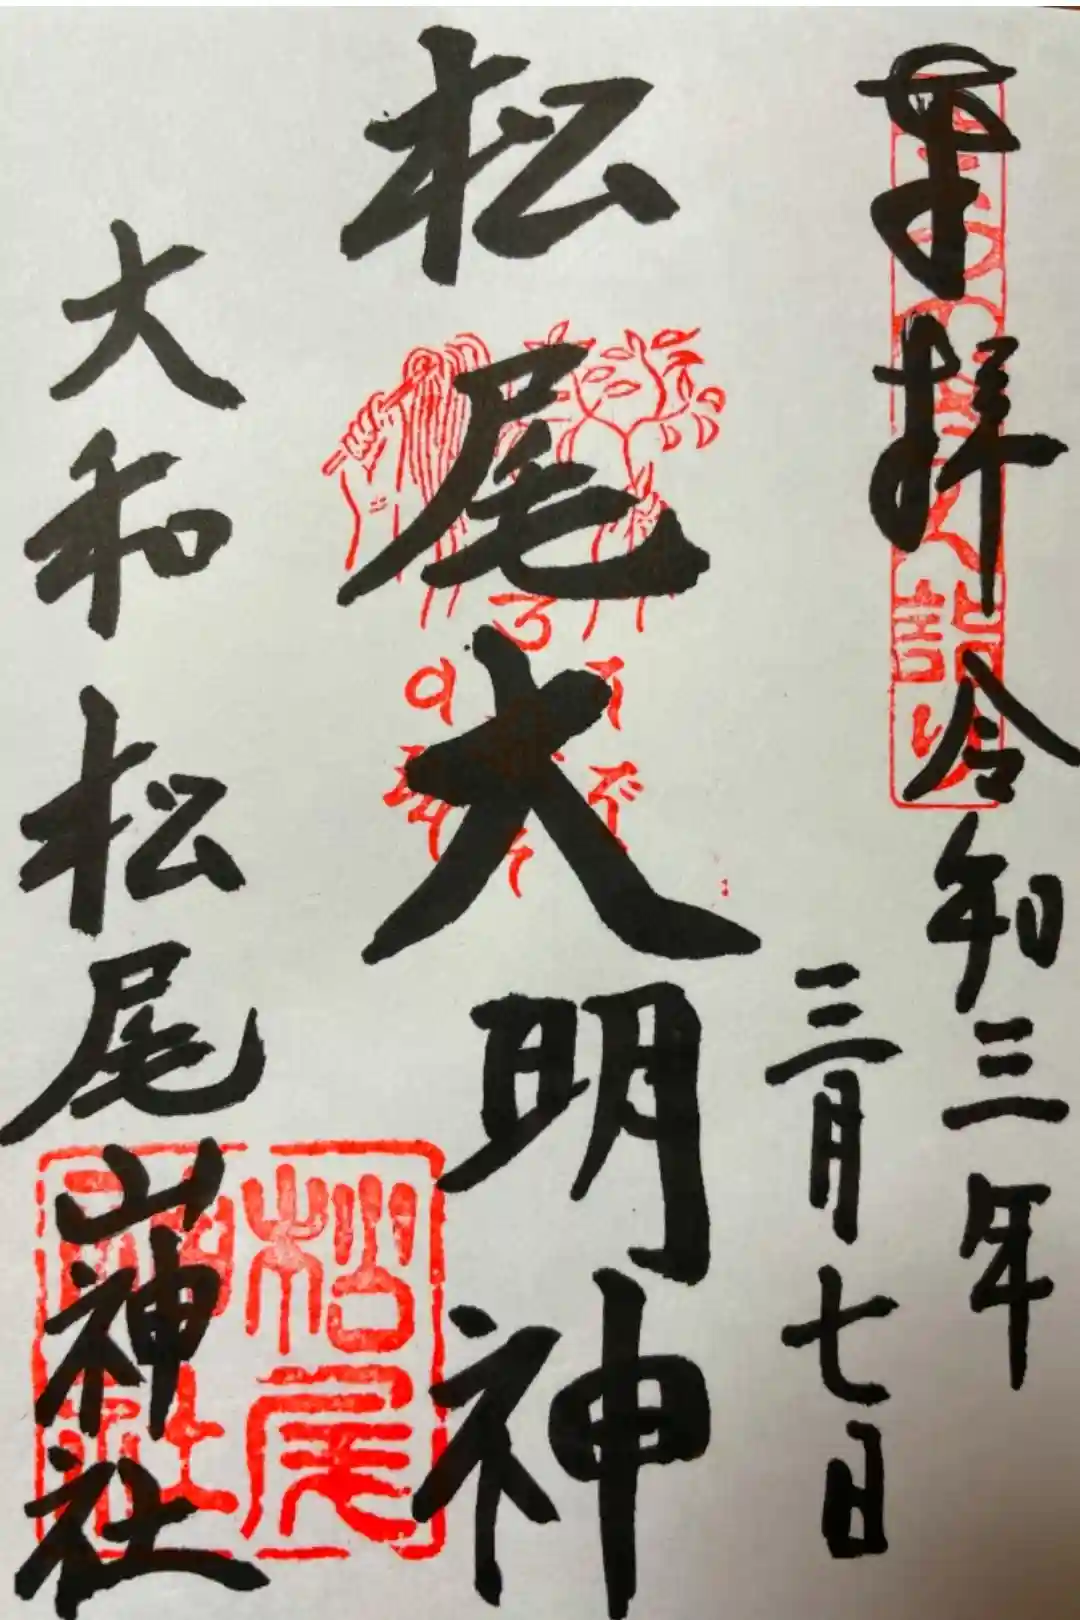 奉拝
令和三年
三月七日
松尾大明神
大和松尾山神社
詣り
松尾
神社